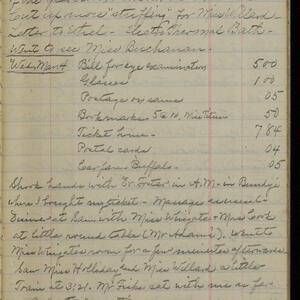 Cut up more "stuffing" for Miss Willard -
Letter to Ethel - Electro Thermal Bath -
Went to see Miss Buchanan.
Wed. Mar 4 Bill for eye examination 5 00
Glasses 1 00
Postage on same 05
Bookmarks 5 & 10, 50
Ticket home - 7 84
Postal cards 04
Carfare Buffalo - 05
Shook hands with Dr. Foster in A.M. in
where I bought my ticket - Massage as usual -
Dinner at 1 P.M. with Miss Wingate - Miss Cook
at little round table (Mr Adams). Went to
Miss Wingate's room for a few minutes afterwards
Saw Miss Holladay and Miss Willard a little
Train at 3:21. Mr. Fricks sat with me as far